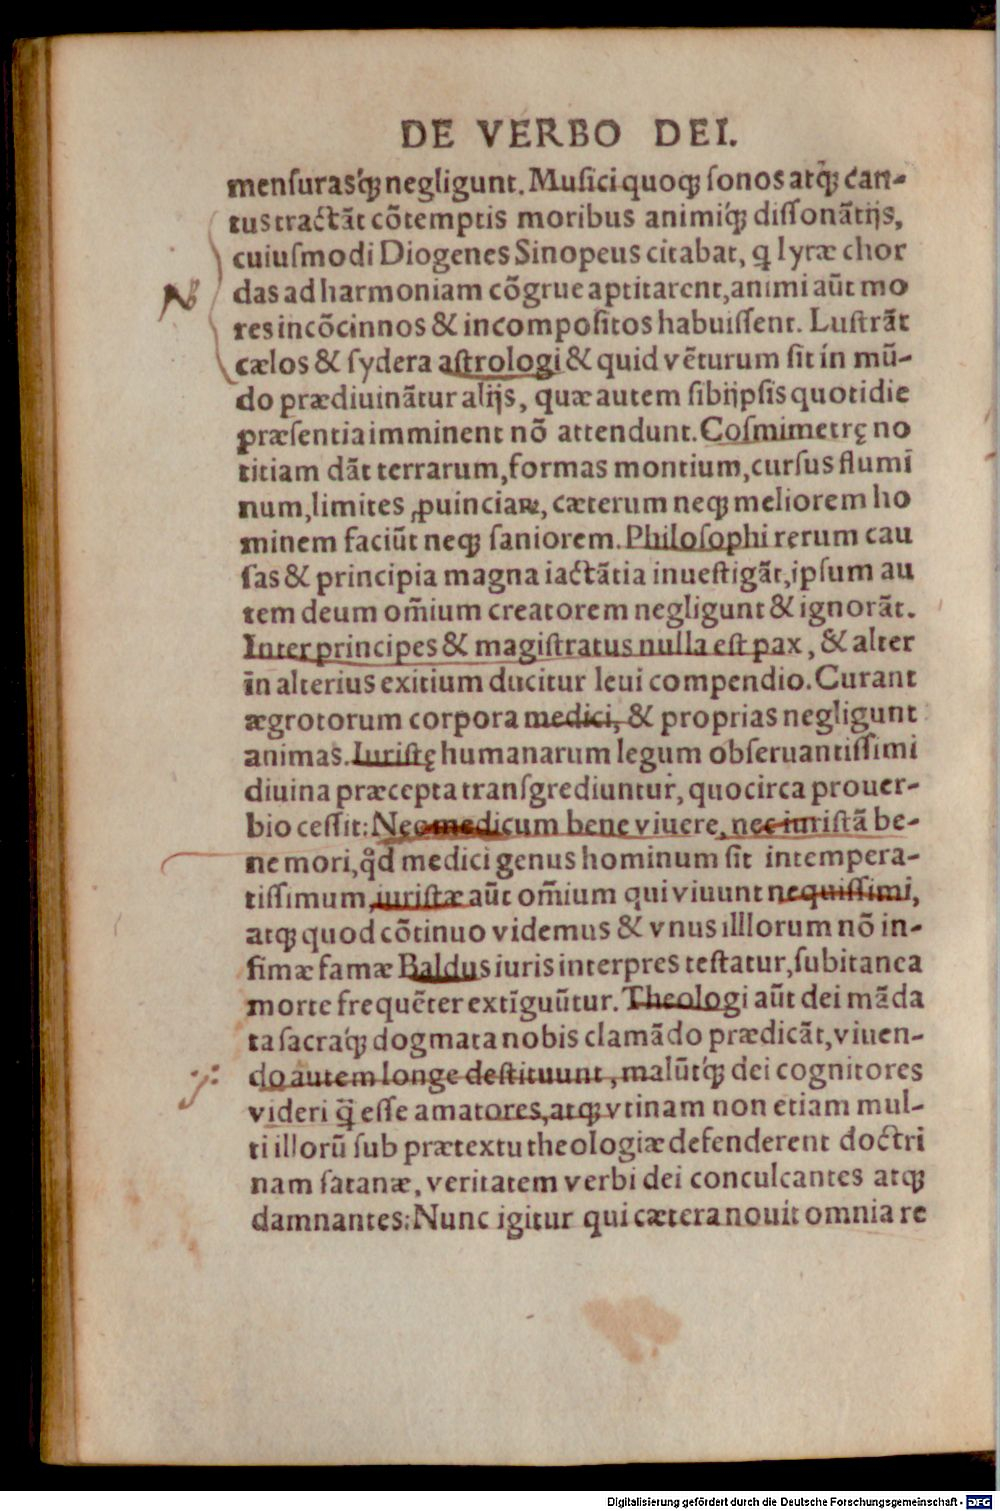 DE VERBO DEI.
menſuraſq́ꝫ negligunt. Muſici quoqꝫ ſonos atq́ꝫ can-
tus tractãt cõtemptis moribus animiq́ꝫ diſſonãtijs,
cuiuſmodi Diogenes Sinopeus citabat, ꝙ lyræ chor
das ad harmoniam cõgrue aptitarent, animi aũt mo
res incõcinnos & incompoſitos habuiſſent. Luſtrãt
cælos & ſydera aſtrologi & quid vẽturum ſit in mũ-
do prædiuinãtur alijs, quæ autem ſibijpſis quotidie
præſentia imminent nõ attendunt. Coſmimetrę no
titiam dãt terrarum, formas montium, curſus flumi
num, limites ꝓuinciaꝝ, cæterum neqꝫ meliorem ho
minem faciũt neqꝫ ſaniorem. Philoſophi rerum cau
ſas & principia magna iactãtia inueſtigãt, ipſum au
tem deum om̃ium creatorem negligunt & ignorãt.
Inter principes & magiſtratus nulla eſt pax, & alter
in alterius exitium ducitur leui compendio. Curant
ægrotorum corpora medici, & proprias negligunt
animas. Iuriſtę humanarum legum obſeruantiſſimi
diuina præcepta tranſgrediuntur, quocirca prouer-
bio ceſſit: Nec medicum bene viuere, nec iuriſtã be-
ne mori, qd̉ medici genus hominum ſit intempera-
tiſſimum, iuriſtæ aũt om̃ium qui viuunt nequiſſimi,
atqꝫ quod cõtinuo videmus & vnus illlorum nõ in-
fimæ famæ Baldus iuris interpres teſtatur, ſubitanea
morte frequẽter extĩguũtur. Theologi aũt dei mãda
ta ſacraq́ꝫ dogmata nobis clamãdo prædicãt, viuen-
do autem longe deſtituunt, malũtq́ꝫ dei cognitores
videri q̃ꝫ eſſe amatores, atqꝫ vtinam non etiam mul-
ti illorũ ſub prætextu theologiæ defenderent doctri
nam ſatanæ, veritatem verbi dei conculcantes atqꝫ
damnantes: Nunc igitur qui cætera nouit omnia re
NB
Digitalisierung gefördert durch die Deutsche Forschungsgemeinschaft - DFG